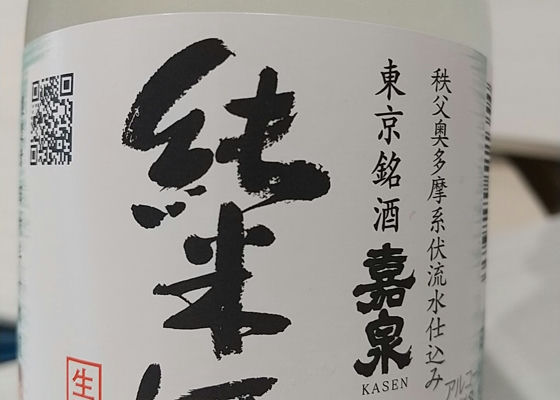 秩父奥多摩系伏流水仕込み
東京銘酒
嘉泉
KASEN
純米
生
アルコ